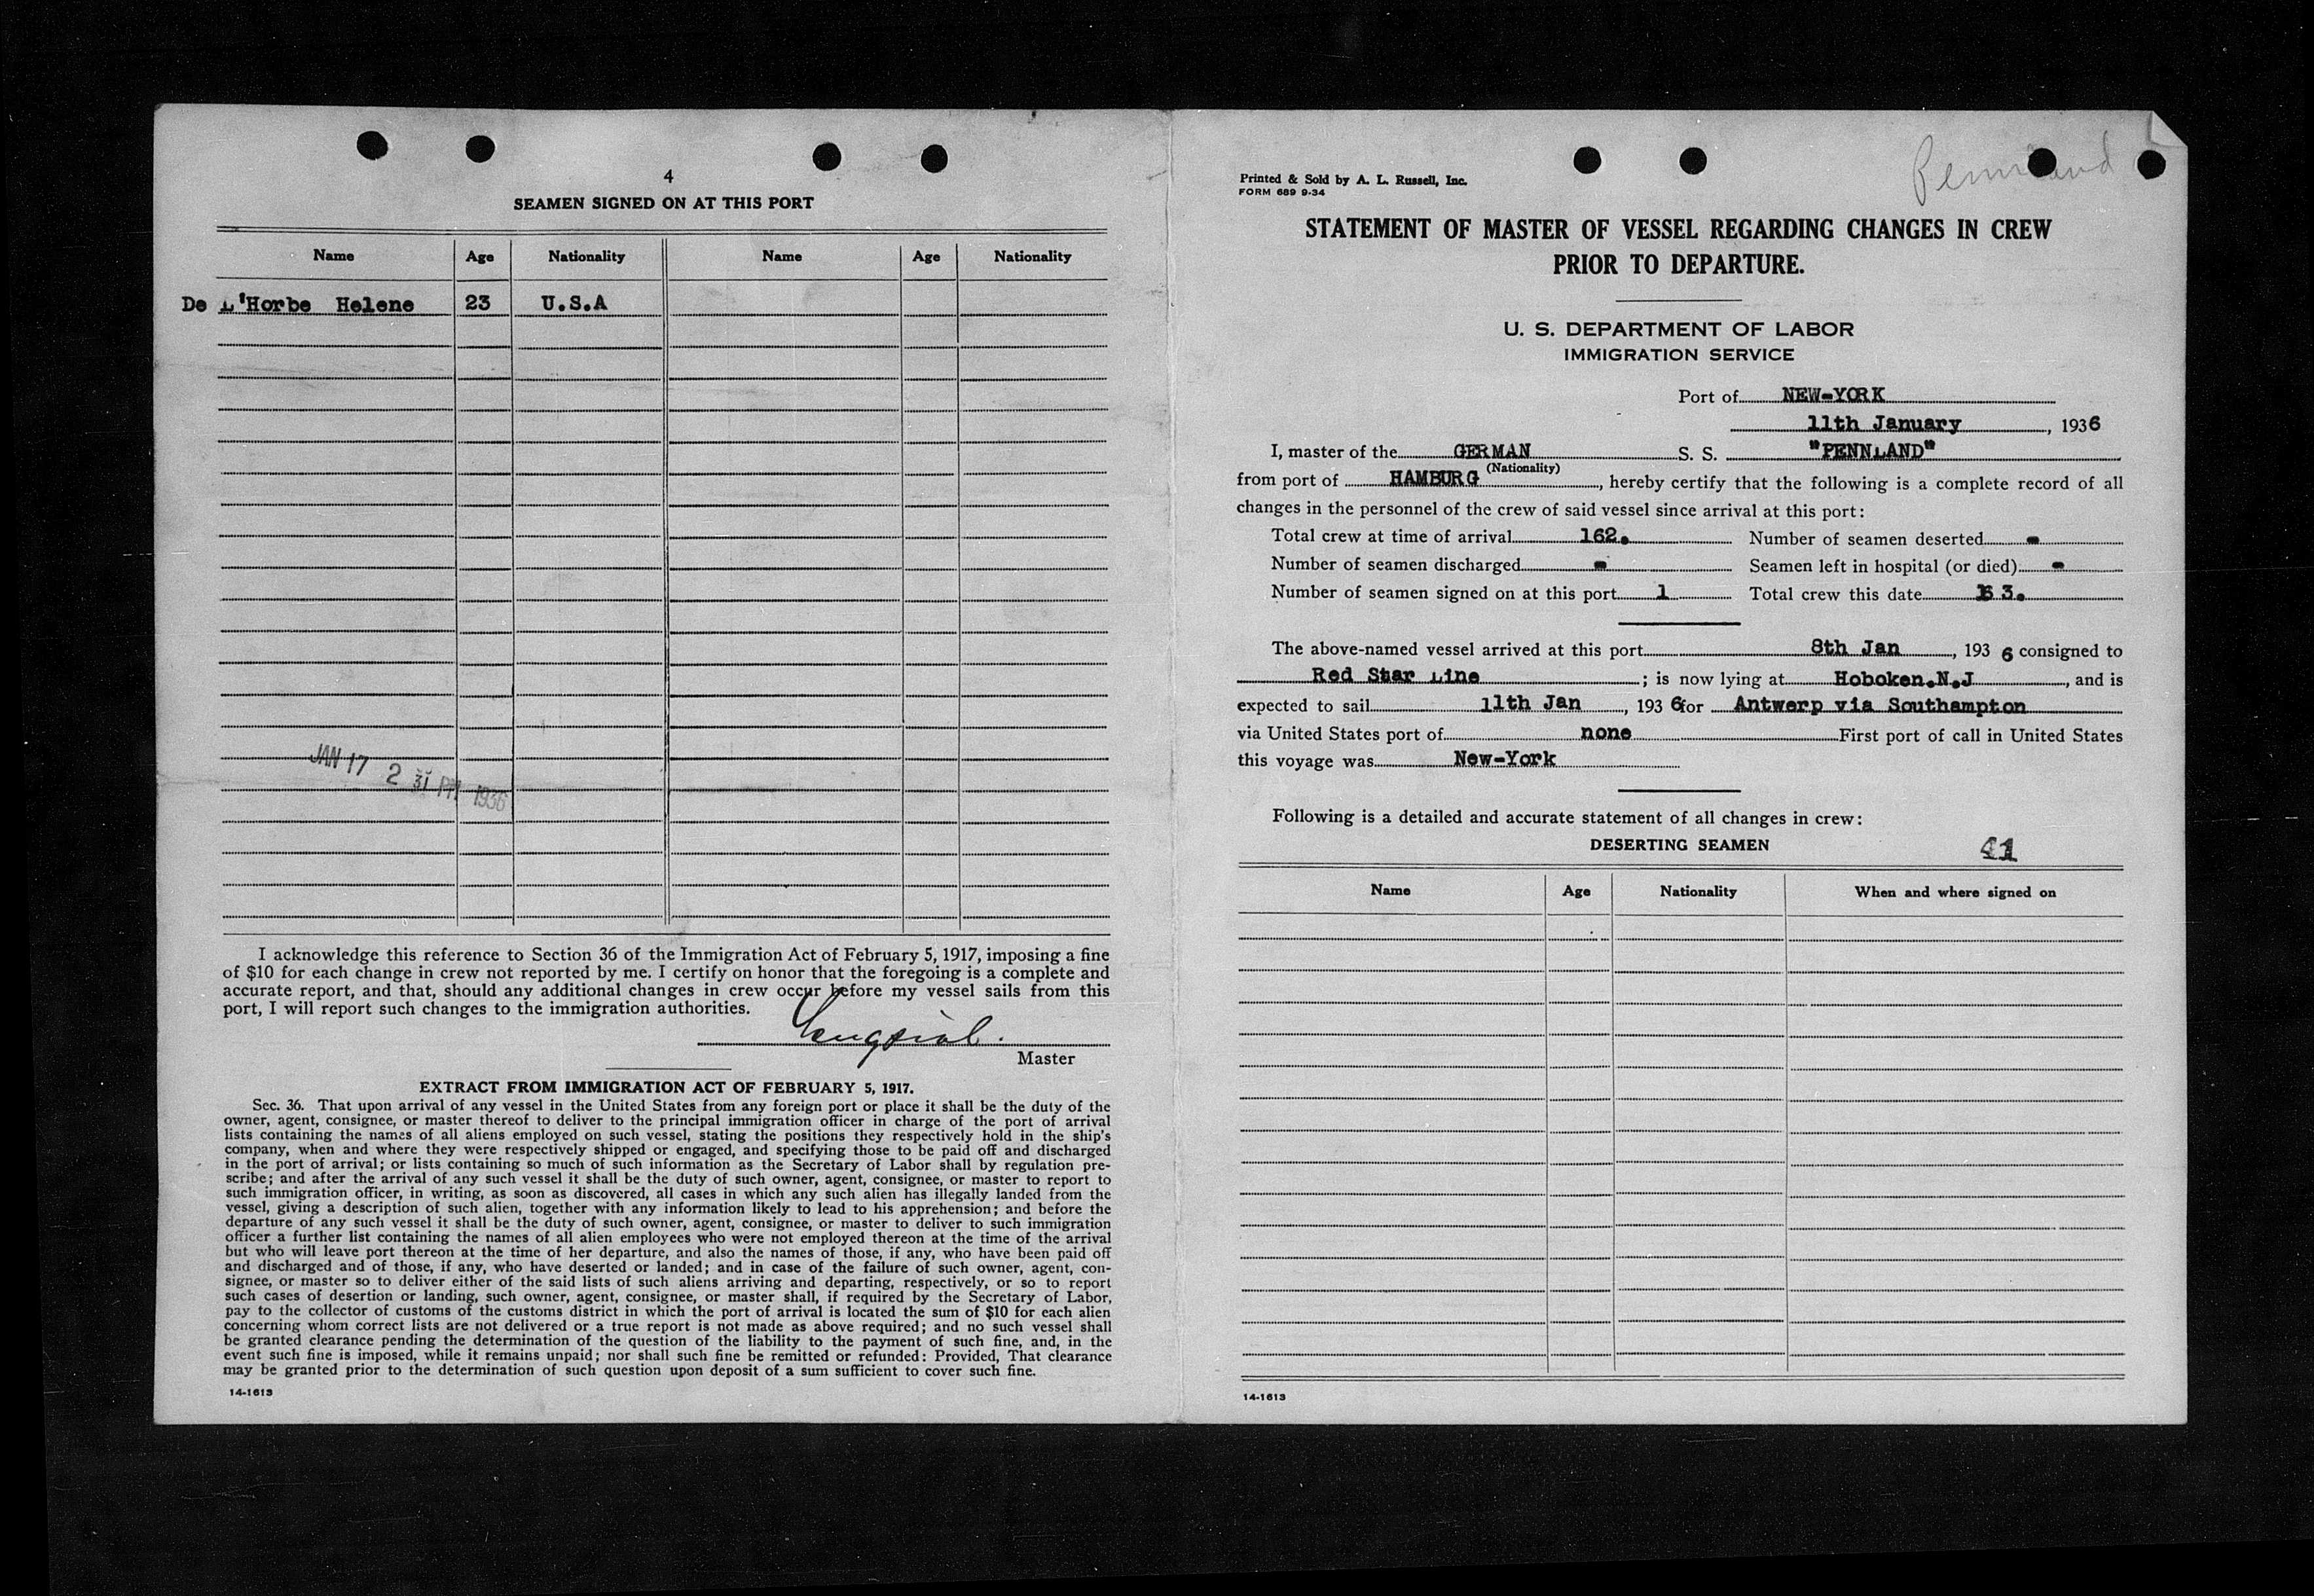 4
SEAMEN SIGNED ON AT THIS PORT
Name Age Nationality Name Age Nationality
De L'Horbe Helene 23 U.S.A
JAN 17 2 31 PM 1936
I acknowledge this reference to Section 36 of the Immigration Act of February 5, 1917, imposing a fine
of $10 for each change in crew not reported by me. I certify on honor that the foregoing is a complete and
accurate report, and that, should any additional changes in crew occur before my vessel sails from this
port, I will report such changes to the immigration authorities.
Master
EXTRACT FROM IMMIGRATION ACT OF FEBRUARY 5, 1917.
Sec. 36. That upon arrival of any vessel in the United States from any foreign port or place it shall be the duty of the
owner, agent, consignee, or master thereof to deliver to the principal immigration officer in charge of the port of arrival
lists containing the names of all aliens employed on such vessel, stating the positions they respectively hold in the ship's
company, when and where they were respectively shipped or engaged, and specifying those to be paid off and discharged
in the port of arrival; or lists containing so much of such information as the Secretary of Labor shall by regulation pre-
scribe; and after the arrival of any such vessel it shall be the duty of such owner, agent, consignee, or master to report to
such immigration officer, in writing, as soon as discovered, all cases in which any such alien has illegally landed from the
vessel, giving a description of such alien, together with any information likely to lead to his apprehension; and before the
departure of any such vessel it shall be the duty of such owner, agent, consignee, or master to deliver to such immigration
officer a further list containing the names of all alien employees who were not employed thereon at the time of the arrival
but who will leave port thereon at the time of her departure, and also the names of those, if any, who have been paid off
and discharged and of those, if any, who have deserted or landed; and in case of the failure of such owner, agent, con-
signee, or master so to deliver either of the said lists of such aliens arriving and departing, respectively, or so to report
such cases of desertion or landing, such owner, agent, consignee, or master shall, if required by the Secretary of Labor,
pay to the collector of customs of the customs district in which the port of arrival is located the sum of $10 for each alien
concerning whom correct lists are not delivered or a true report is not made as above required; and no such vessel shall
be granted clearance pending the determination of the question of the liability to the payment of such fine, and, in the
event such fine is imposed, while it remains unpaid; nor shall such fine be remitted or refunded: Provided, That clearance
may be granted prior to the determination of such question upon deposit of a sum sufficient to cover such fine.
14-1613
Pennland
Printed & Sold by A. L. Russell, Inc.
FORM 689 9-34
STATEMENT OF MASTER OF VESSEL REGARDING CHANGES IN CREW
PRIOR TO DEPARTURE.
U. S. DEPARTMENT OF LABOR
IMMIGRATION SERVICE
Port of NEW-YORK
11th January, 1936
I, master of the GERMAN S. S. "PENNLAND"
(Nationality)
from port of HAMBURG, hereby certify that the following is a complete record of all
changes in the personnel of the crew of said vessel since arrival at this port:
Total crew at time of arrival 162. Number of seamen deserted -
Number of seamen discharged - Seamen left in hospital (or died) -
Number of seamen signed on at this port 1 Total crew this date 163.
The above-named vessel arrived at this port 8th Jan, 1936 consigned to
Red Star Line; is now lying at Hoboken.N.J, and is
expected to sail 11th Jan, 1936 for Antwerp via Southampton
via United States port of none First port of call in United States
this voyage was New-York
Following is a detailed and accurate statement of all changes in crew:
DESERTING SEAMEN 41
Name Age Nationality When and where signed on
14-1613